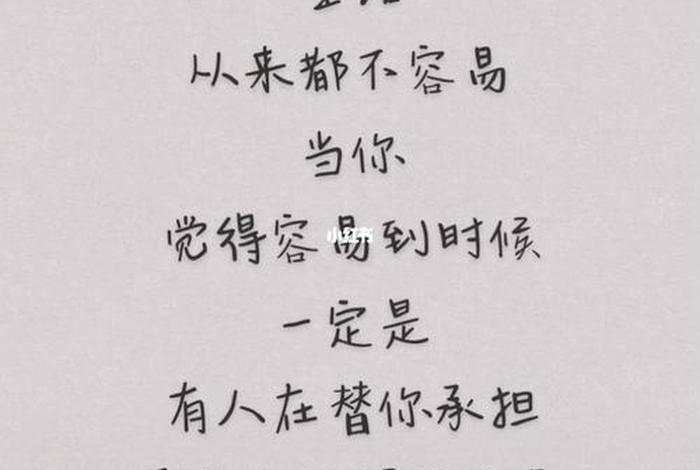 从来都不容易
当你
觉得容易到时候
小红书
一定是
有人在替你承担